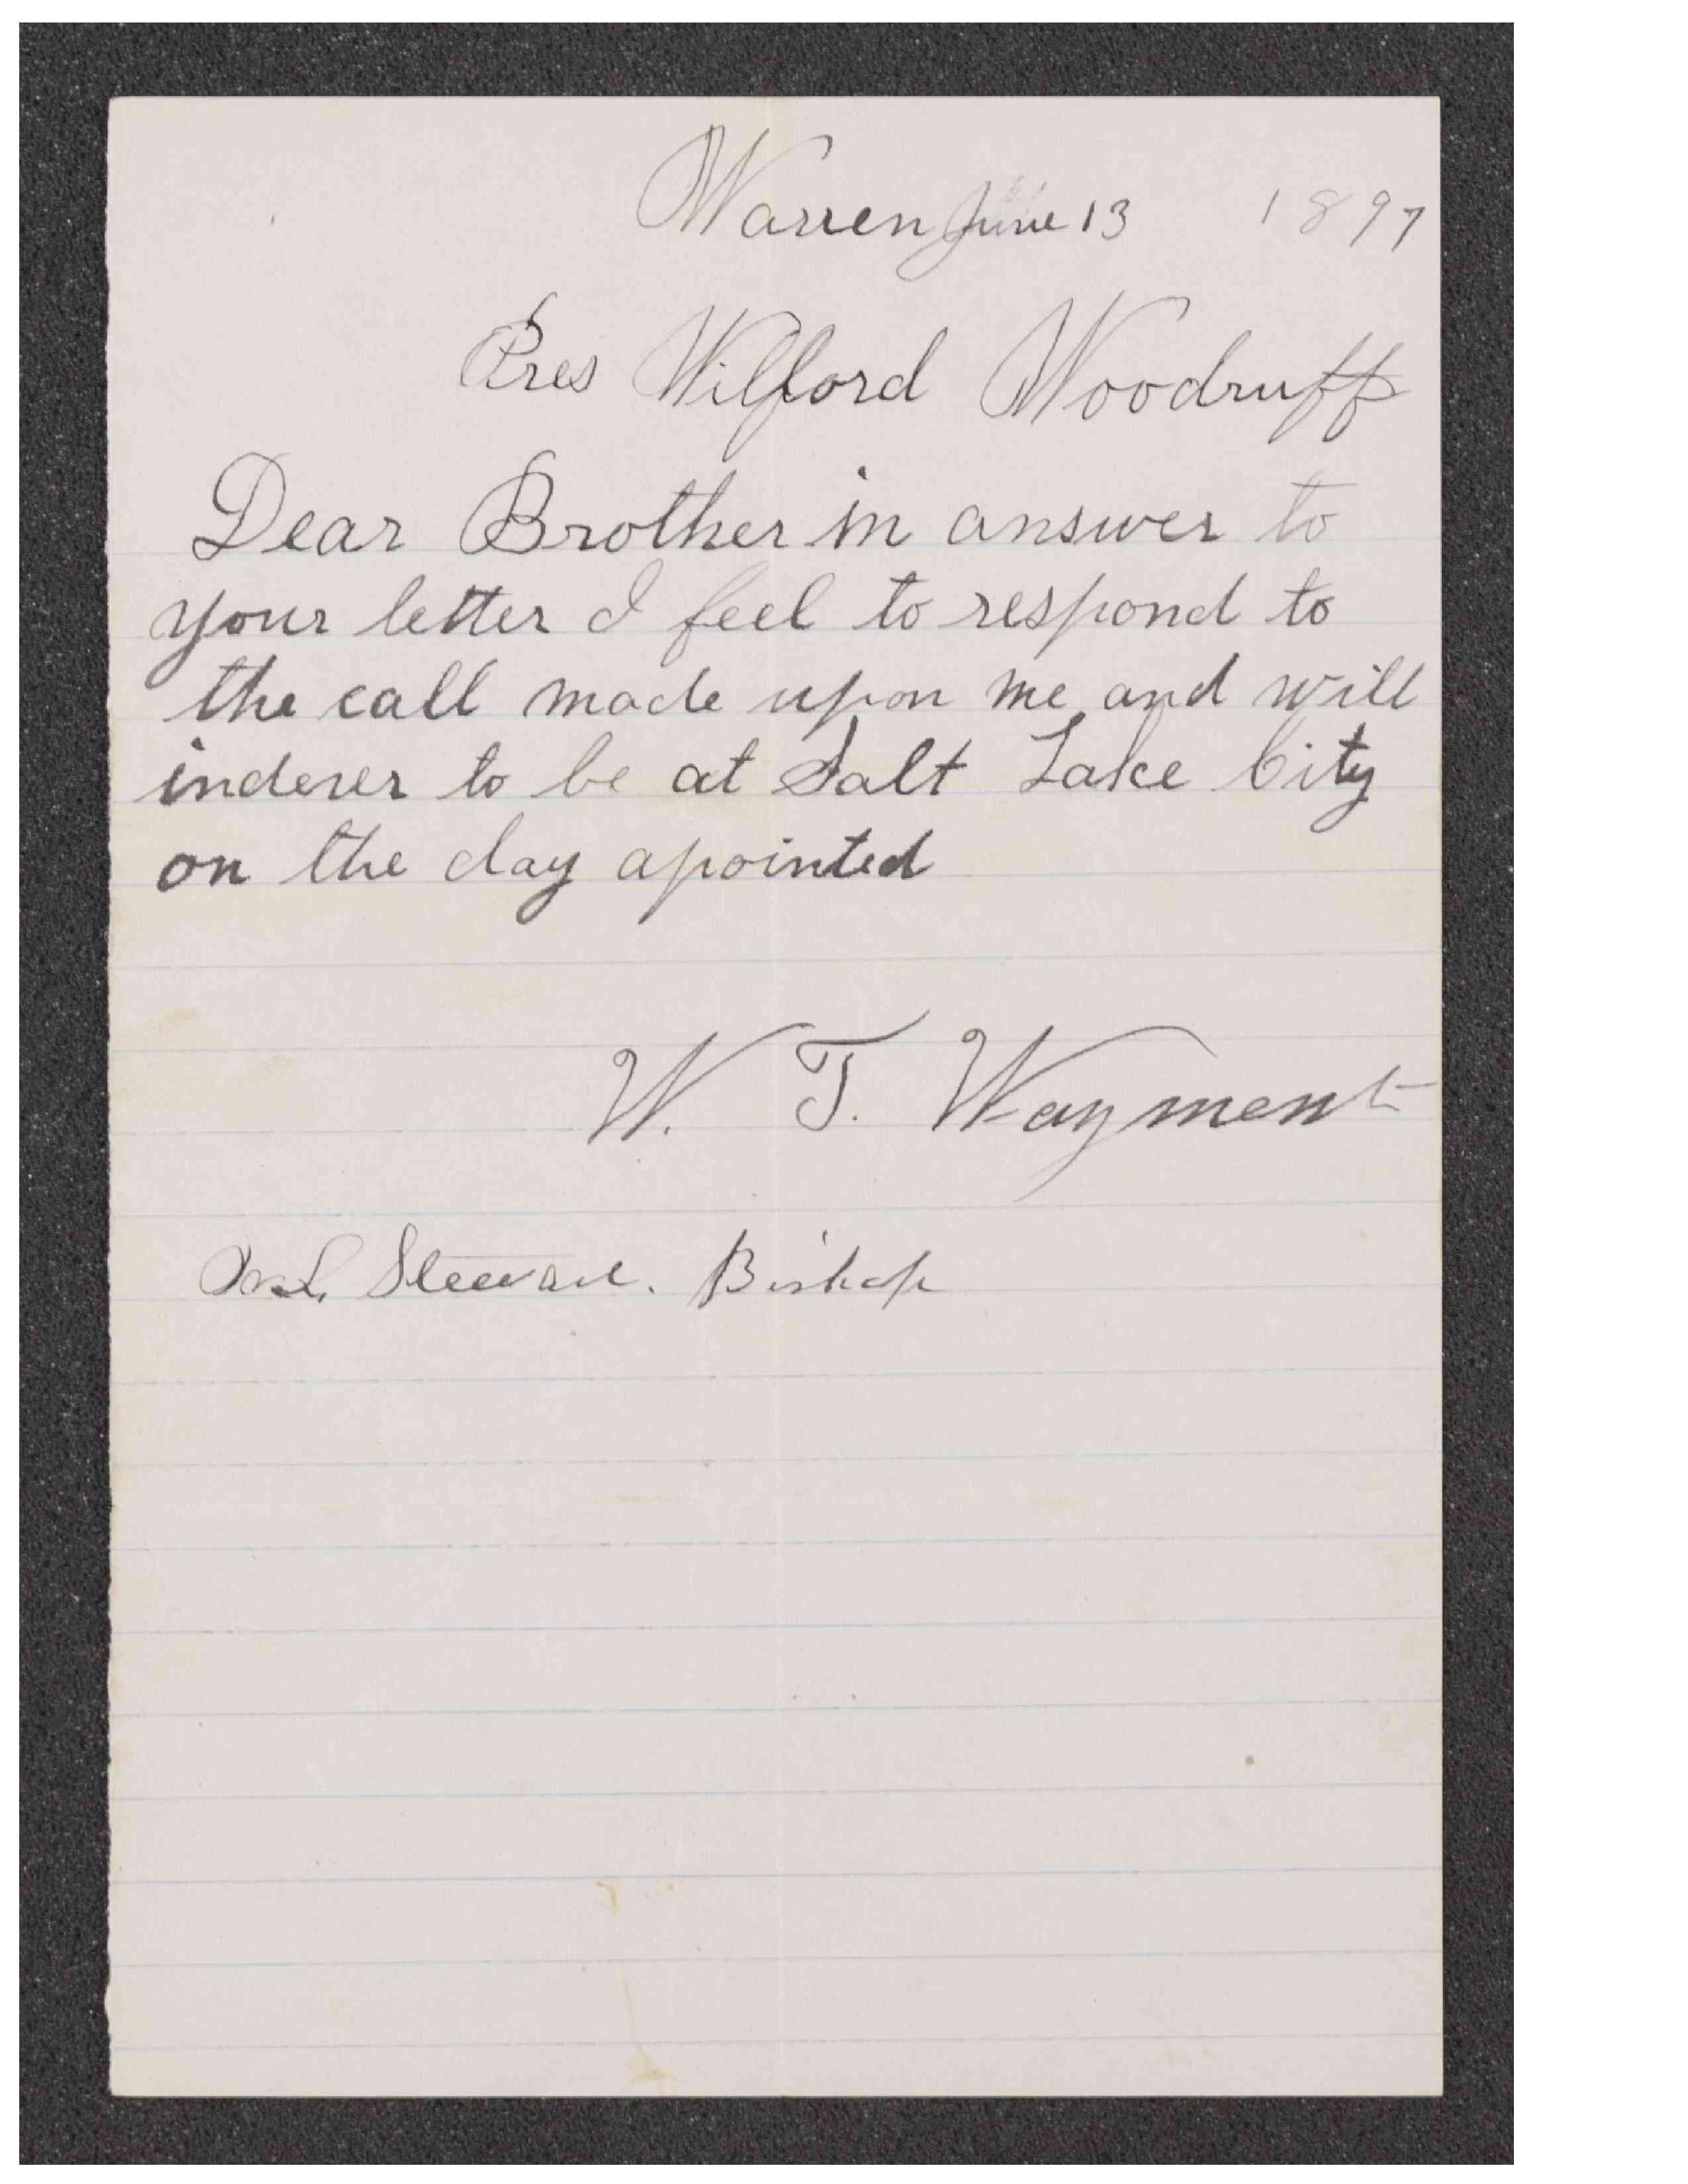 Warren June 13 1897
Pres Wilford Woodruff
Dear Brother in answer to
your letter I feel to respond to
the call made upon me and will
inderer to be at Salt Lake City
on the day apointed
W. T. Wayment
Stewart. Bishop